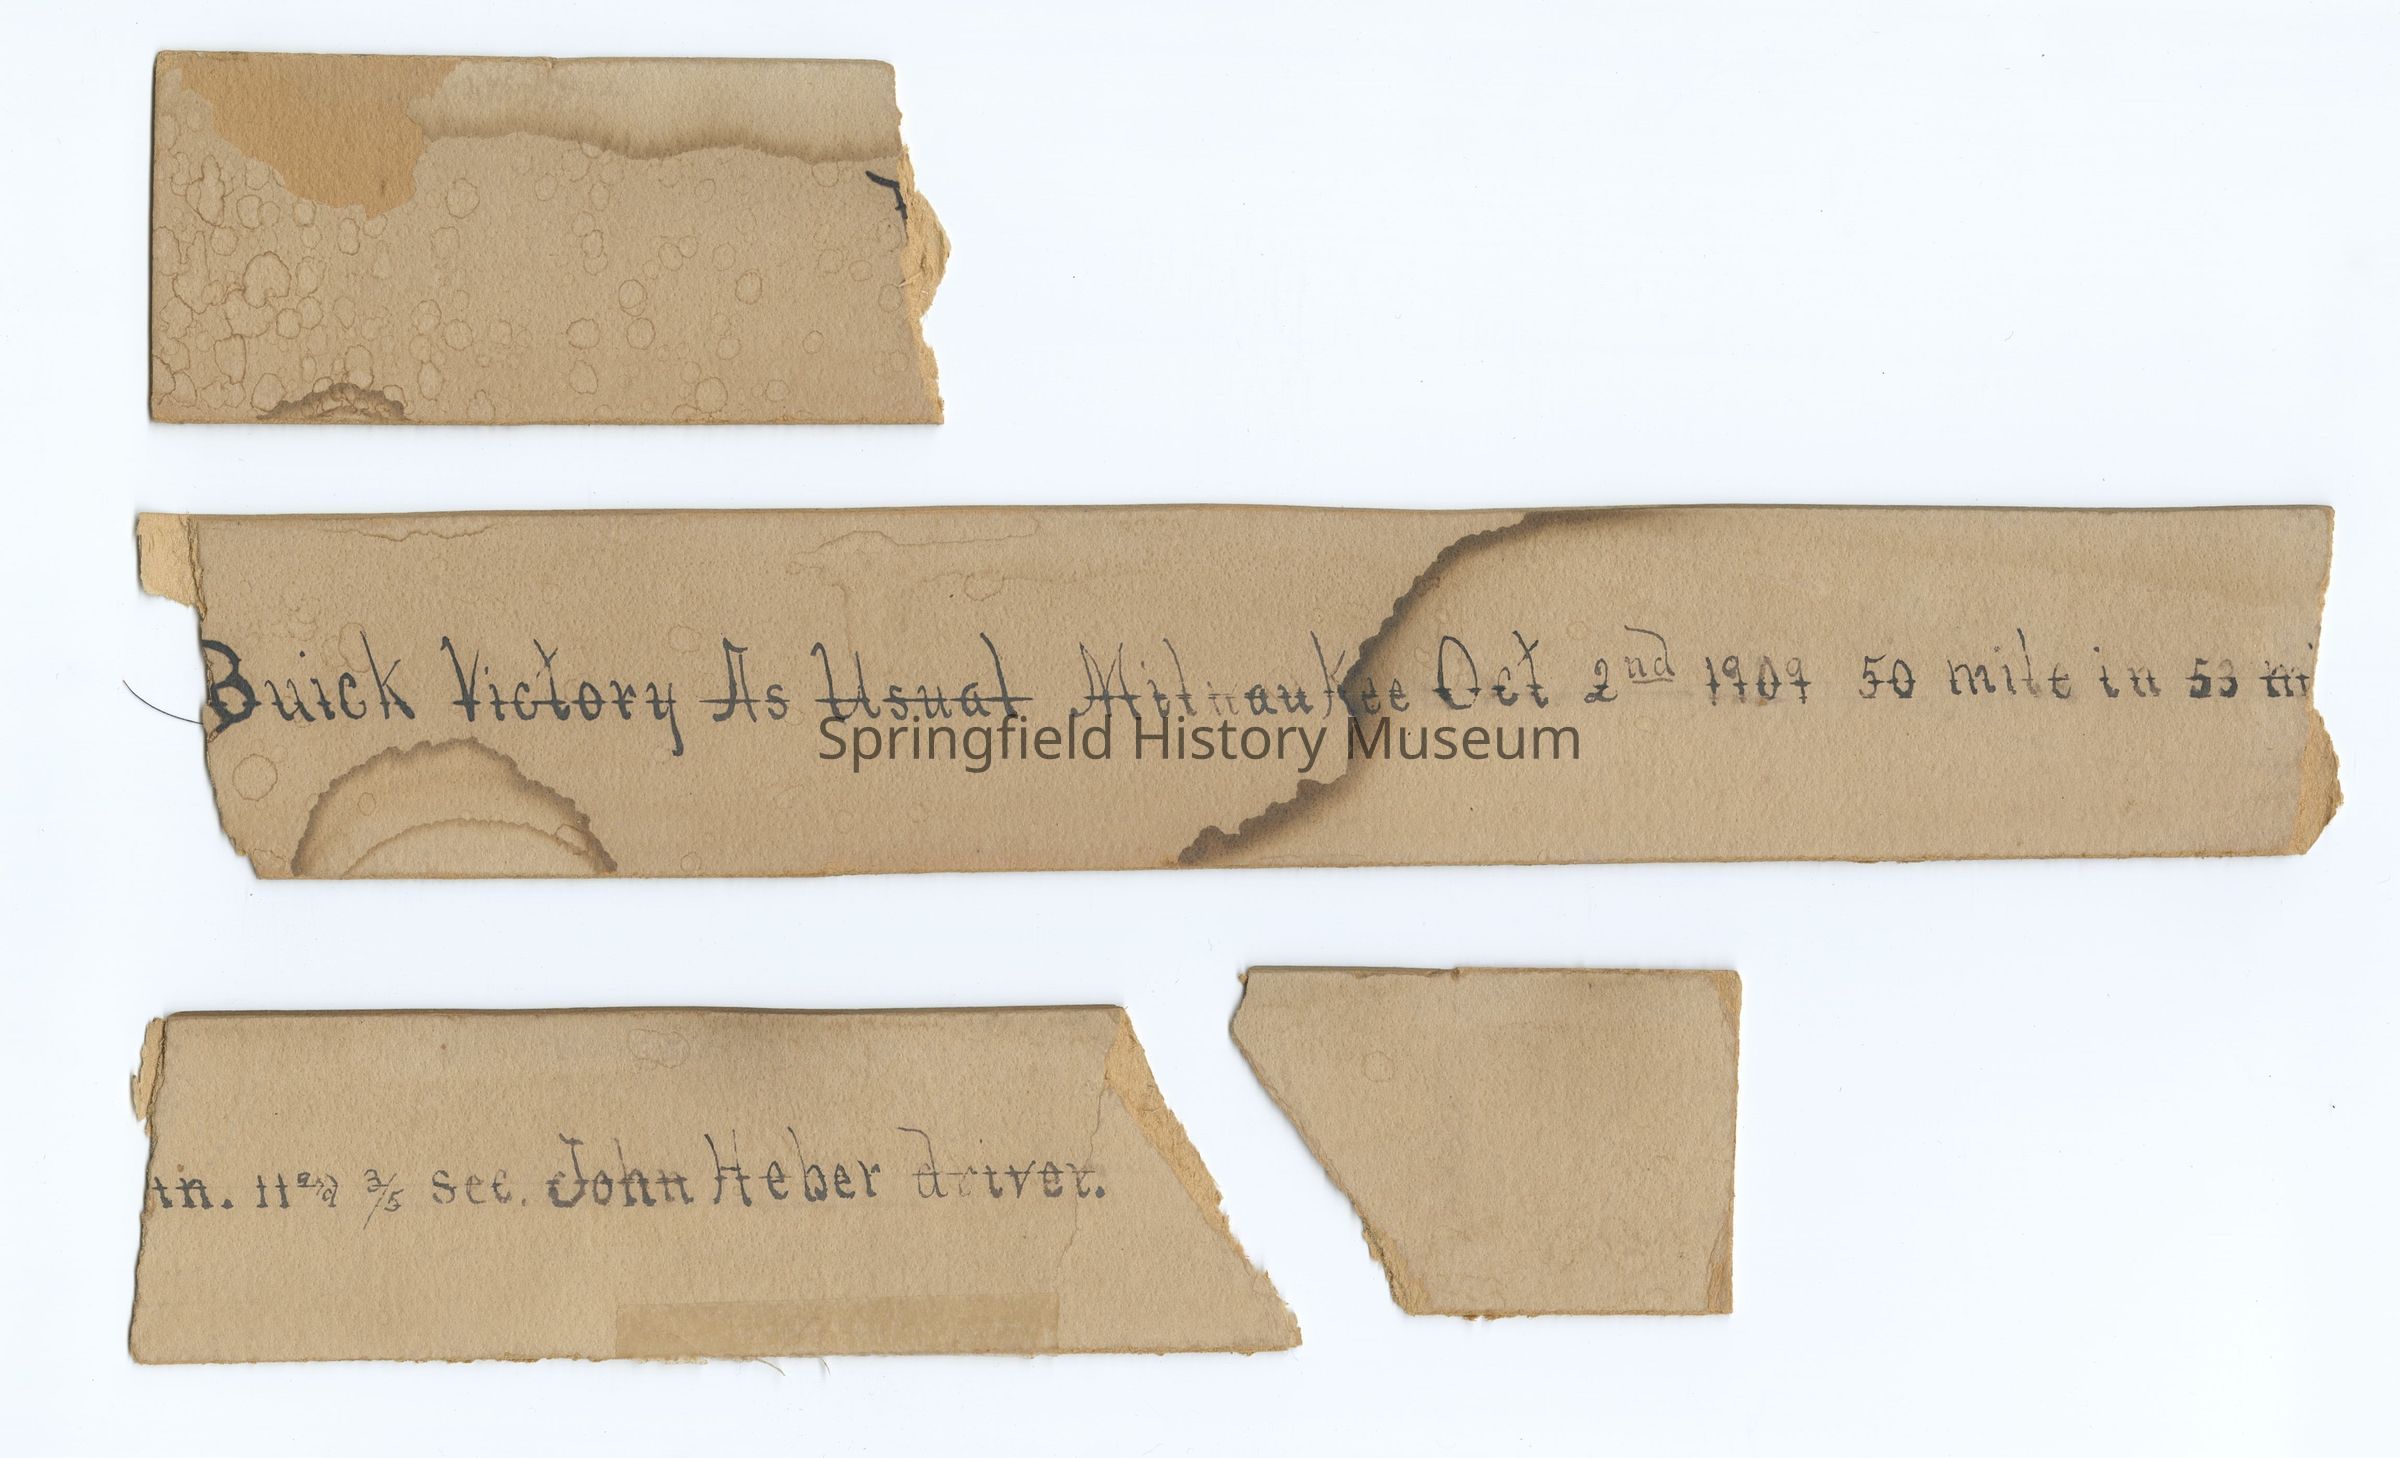 Buick Victory As Usual Milwaukee Oct 2nd 1909 50 mile in 53 mi
Springfield History Museum
in. 11 and 3/5 sec. John Heber driver.